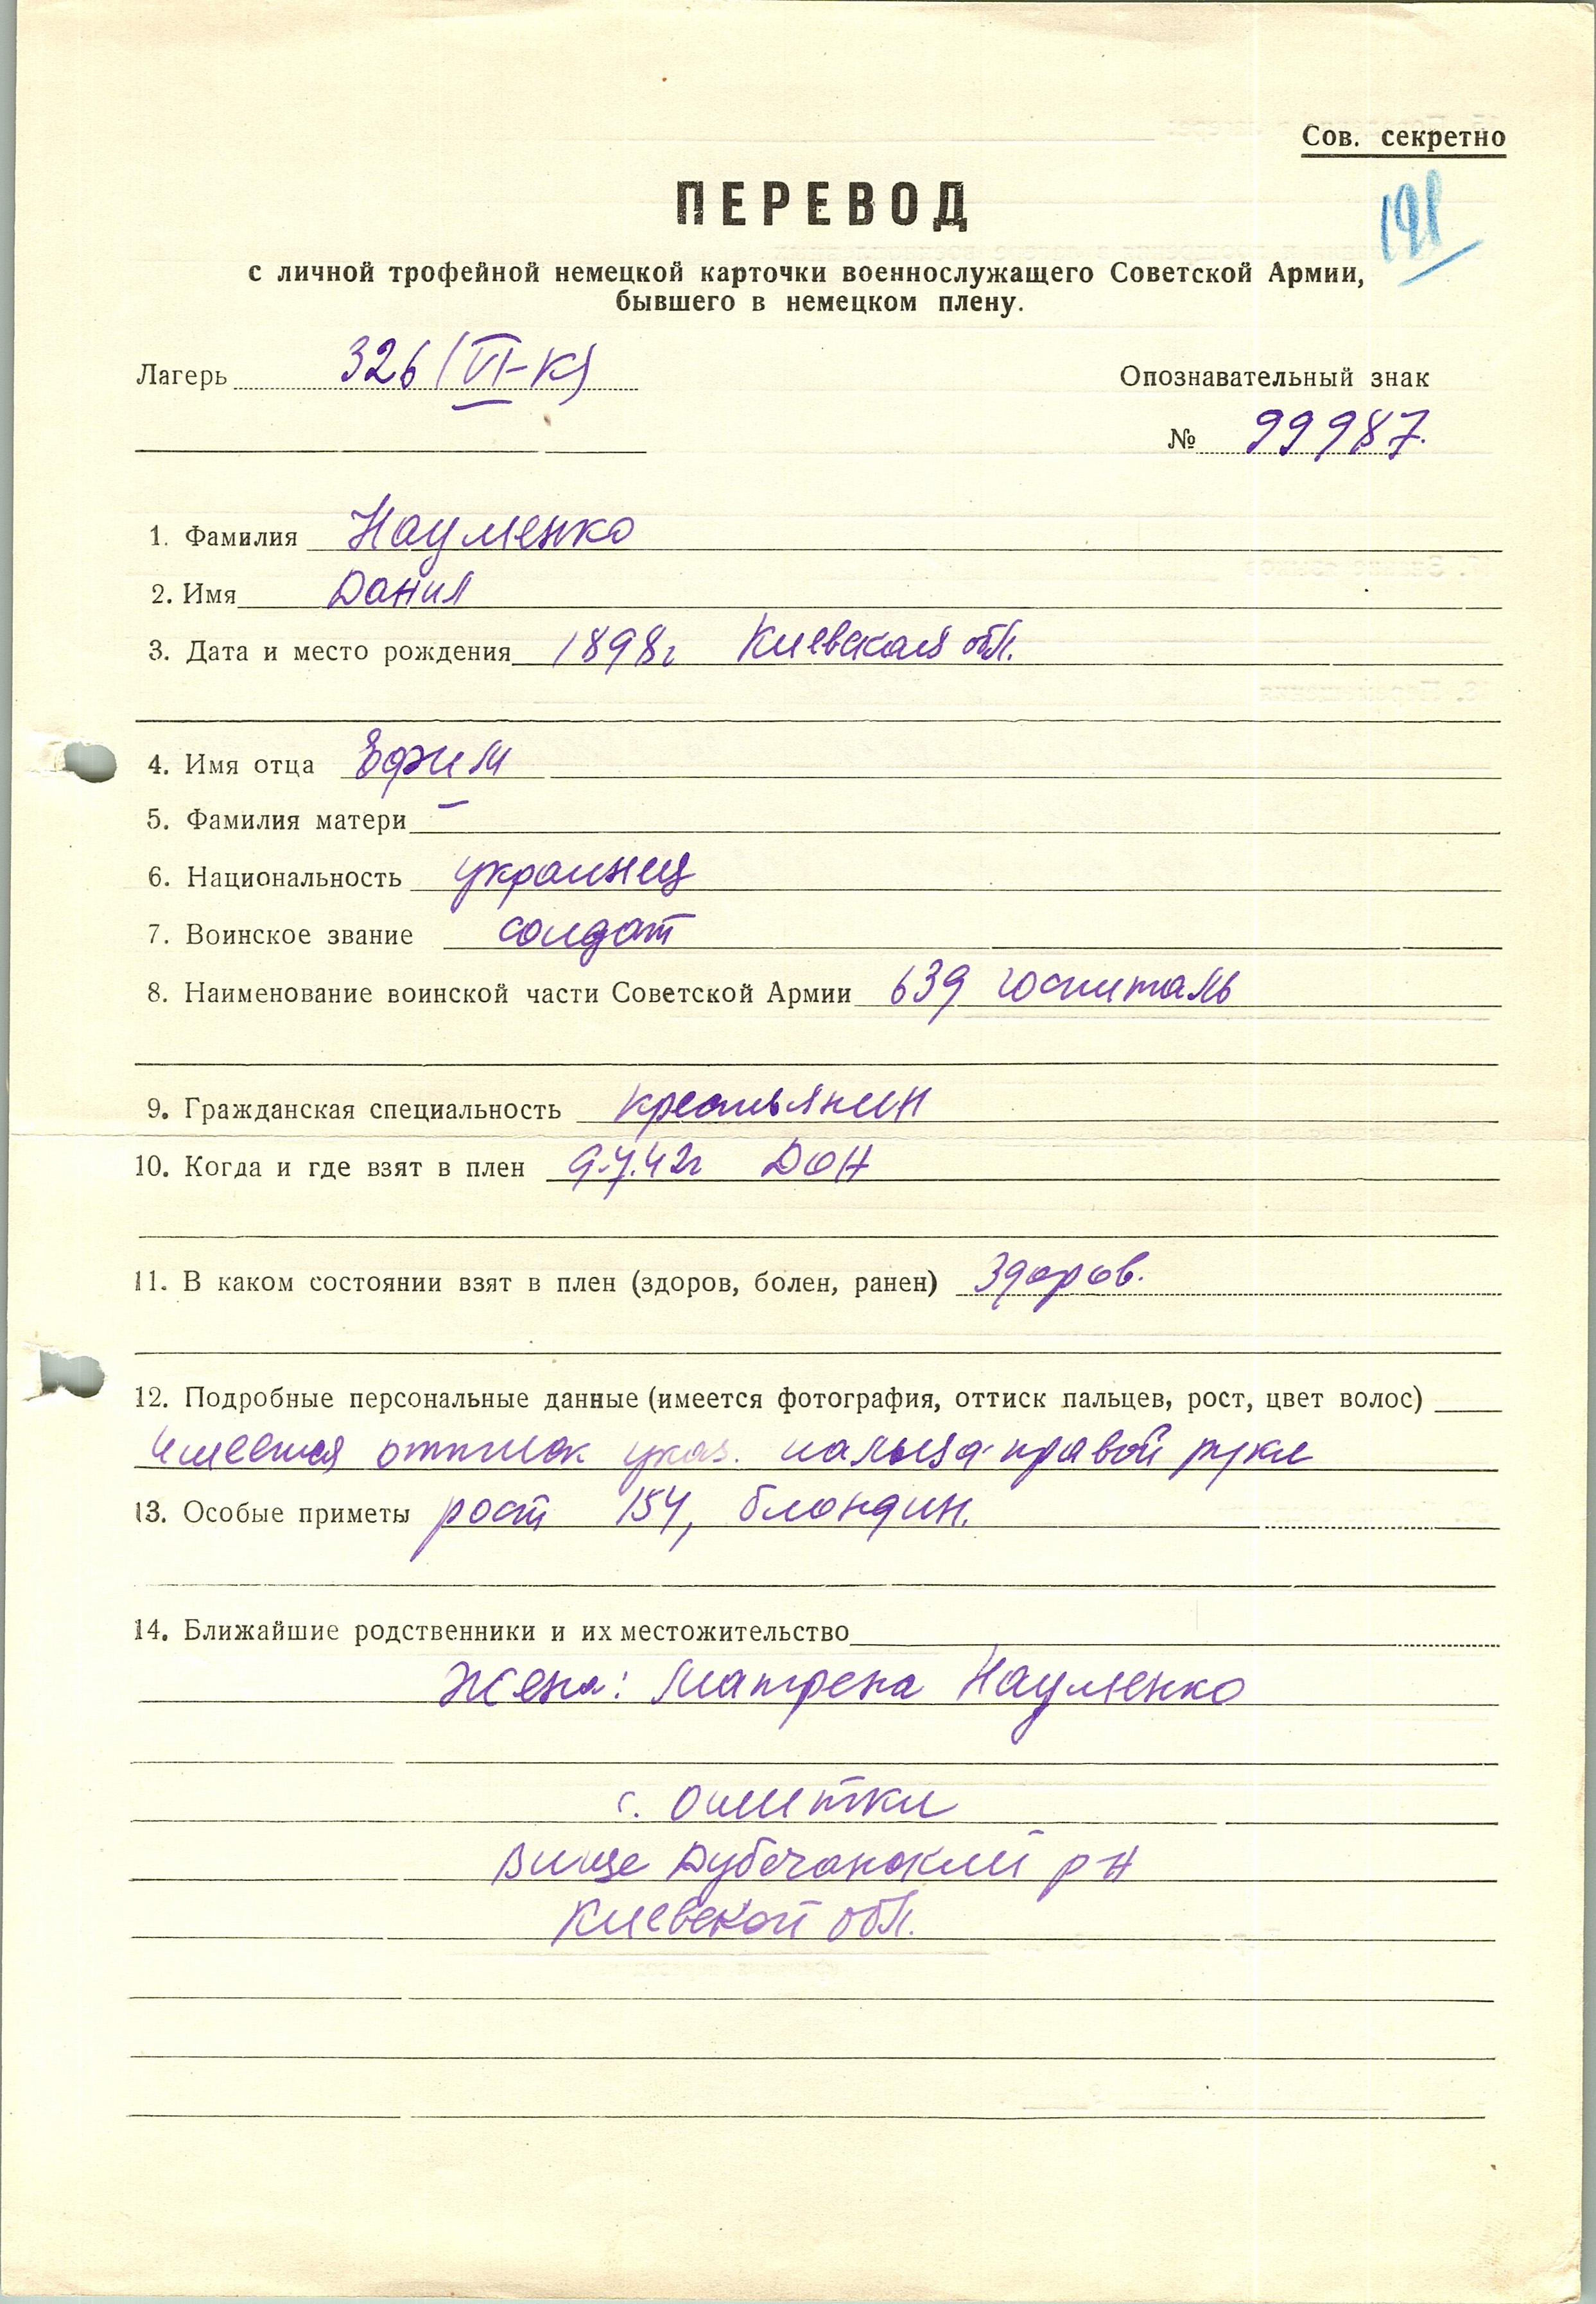 Сов. секретно
191
ПЕРЕВОД
с личной трофейной немецкой карточки военнослужащего Советской Армии,
бывшего в немецком плену.
Лагерь 326 (VI-К)
Опознавательный знак
№ 99987.
1. Фамилия Науменко
2. Имя Данил
3. Дата и место рождения 1898г Киевская обл.
4. Имя отца Ефим
5. Фамилия матери –
6. Национальность украинец
7. Воинское звание солдат
8. Наименование воинской части Советской Армии 639 госпиталь
9. Гражданская специальность крестьянин
10. Когда и где взят в плен 9.7.42г Дон
11. В каком состоянии взят в плен (здоров, болен, ранен) здоров.
12. Подробные персональные данные (имеется фотография, оттиск пальцев, рост, цвет волос)
Имеется оттиск указ. пальца правой руки
13. Особые приметы рост 154, блондин.
14. Ближайшие родственники и их местожительство
Жена: Матрена Науменко
с. Ошитки
Вище Дубечанский р-н
Киевской обл.